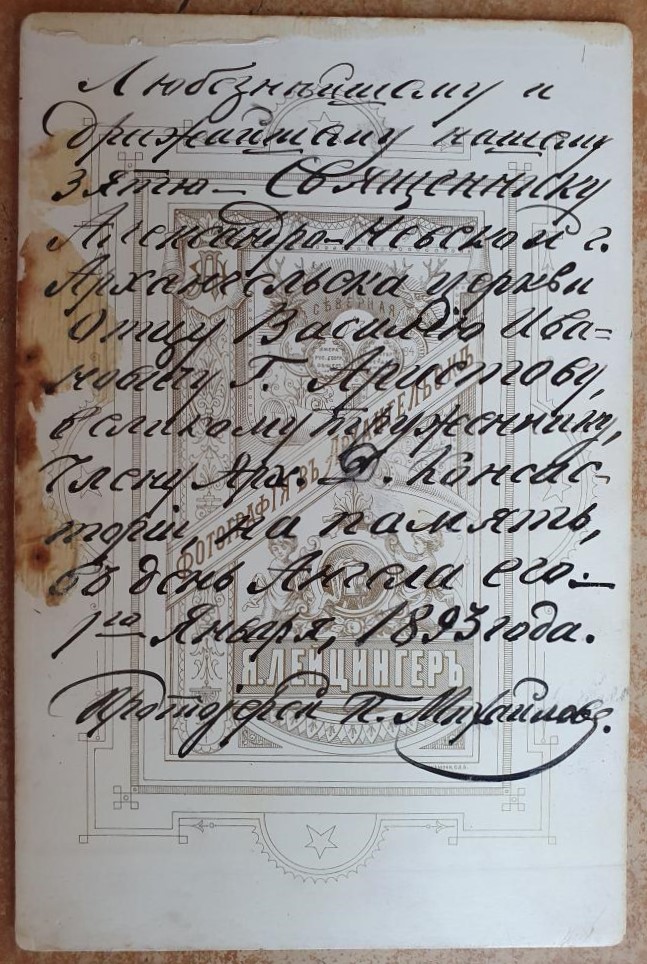 Любезнѣйшему и
дражайшему нашему
зятю – Священнику
Александро-Невской г.
Архангельска церкви
Отцу Василію Ива=
новичу Г. Аристову,
великому труженнику,
Члену Арх. Д. Консис-
торіи, на память,
въ день Ангела его. —
1го Января, 1893 года.
Протоіерей П. Михайловъ.
СѢВЕРНАЯ
ФОТОГРАФІЯ ВЪ АРХАНГЕЛЬСКѢ
Я. ЛЕЙЦИНГЕРЪ